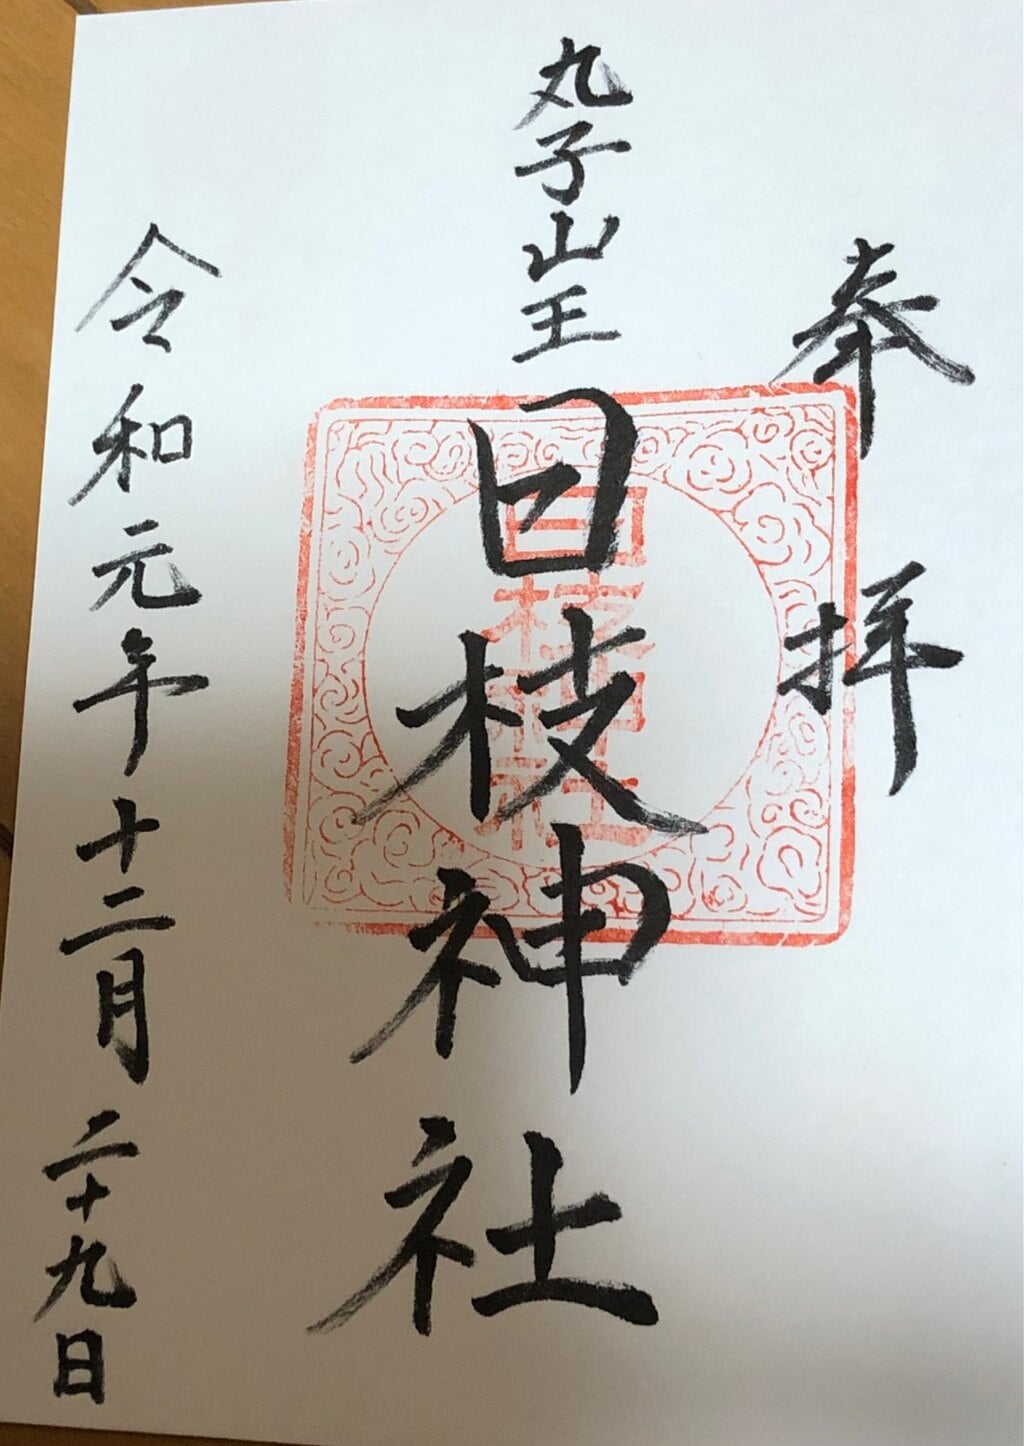 奉拝
丸子山王
日枝神社
日枝神社
令和元年十二月二十九日